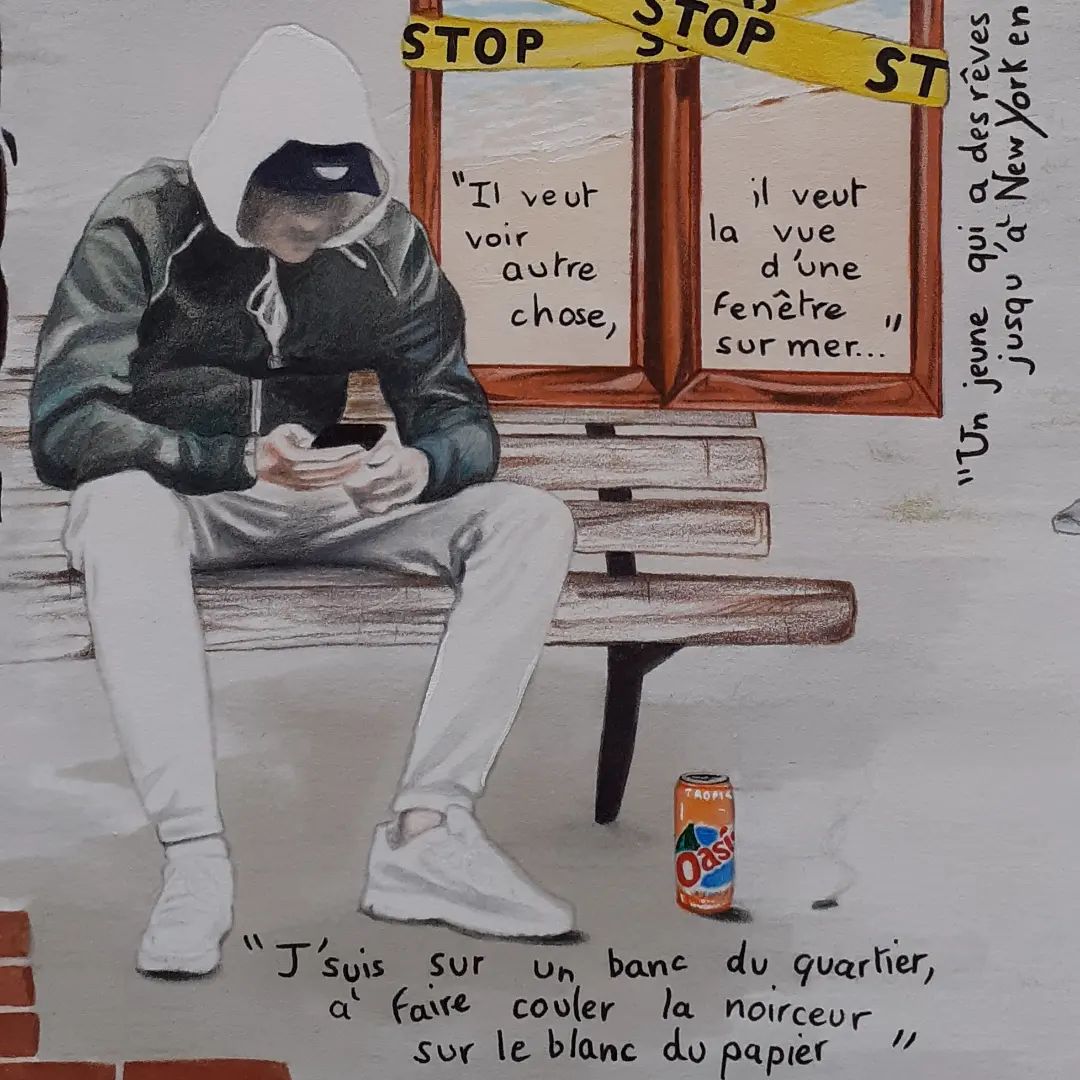 STOP
STOP
ST
"Il veut
voir
autre
chose,
il veut
la vue
d'une
fenêtre
sur mer..."
"Un jeune qui a des rêves
jusqu'à New York en
Oasis
"J'suis sur un banc du quartier,
à faire couler la noirceur
sur le blanc du papier"